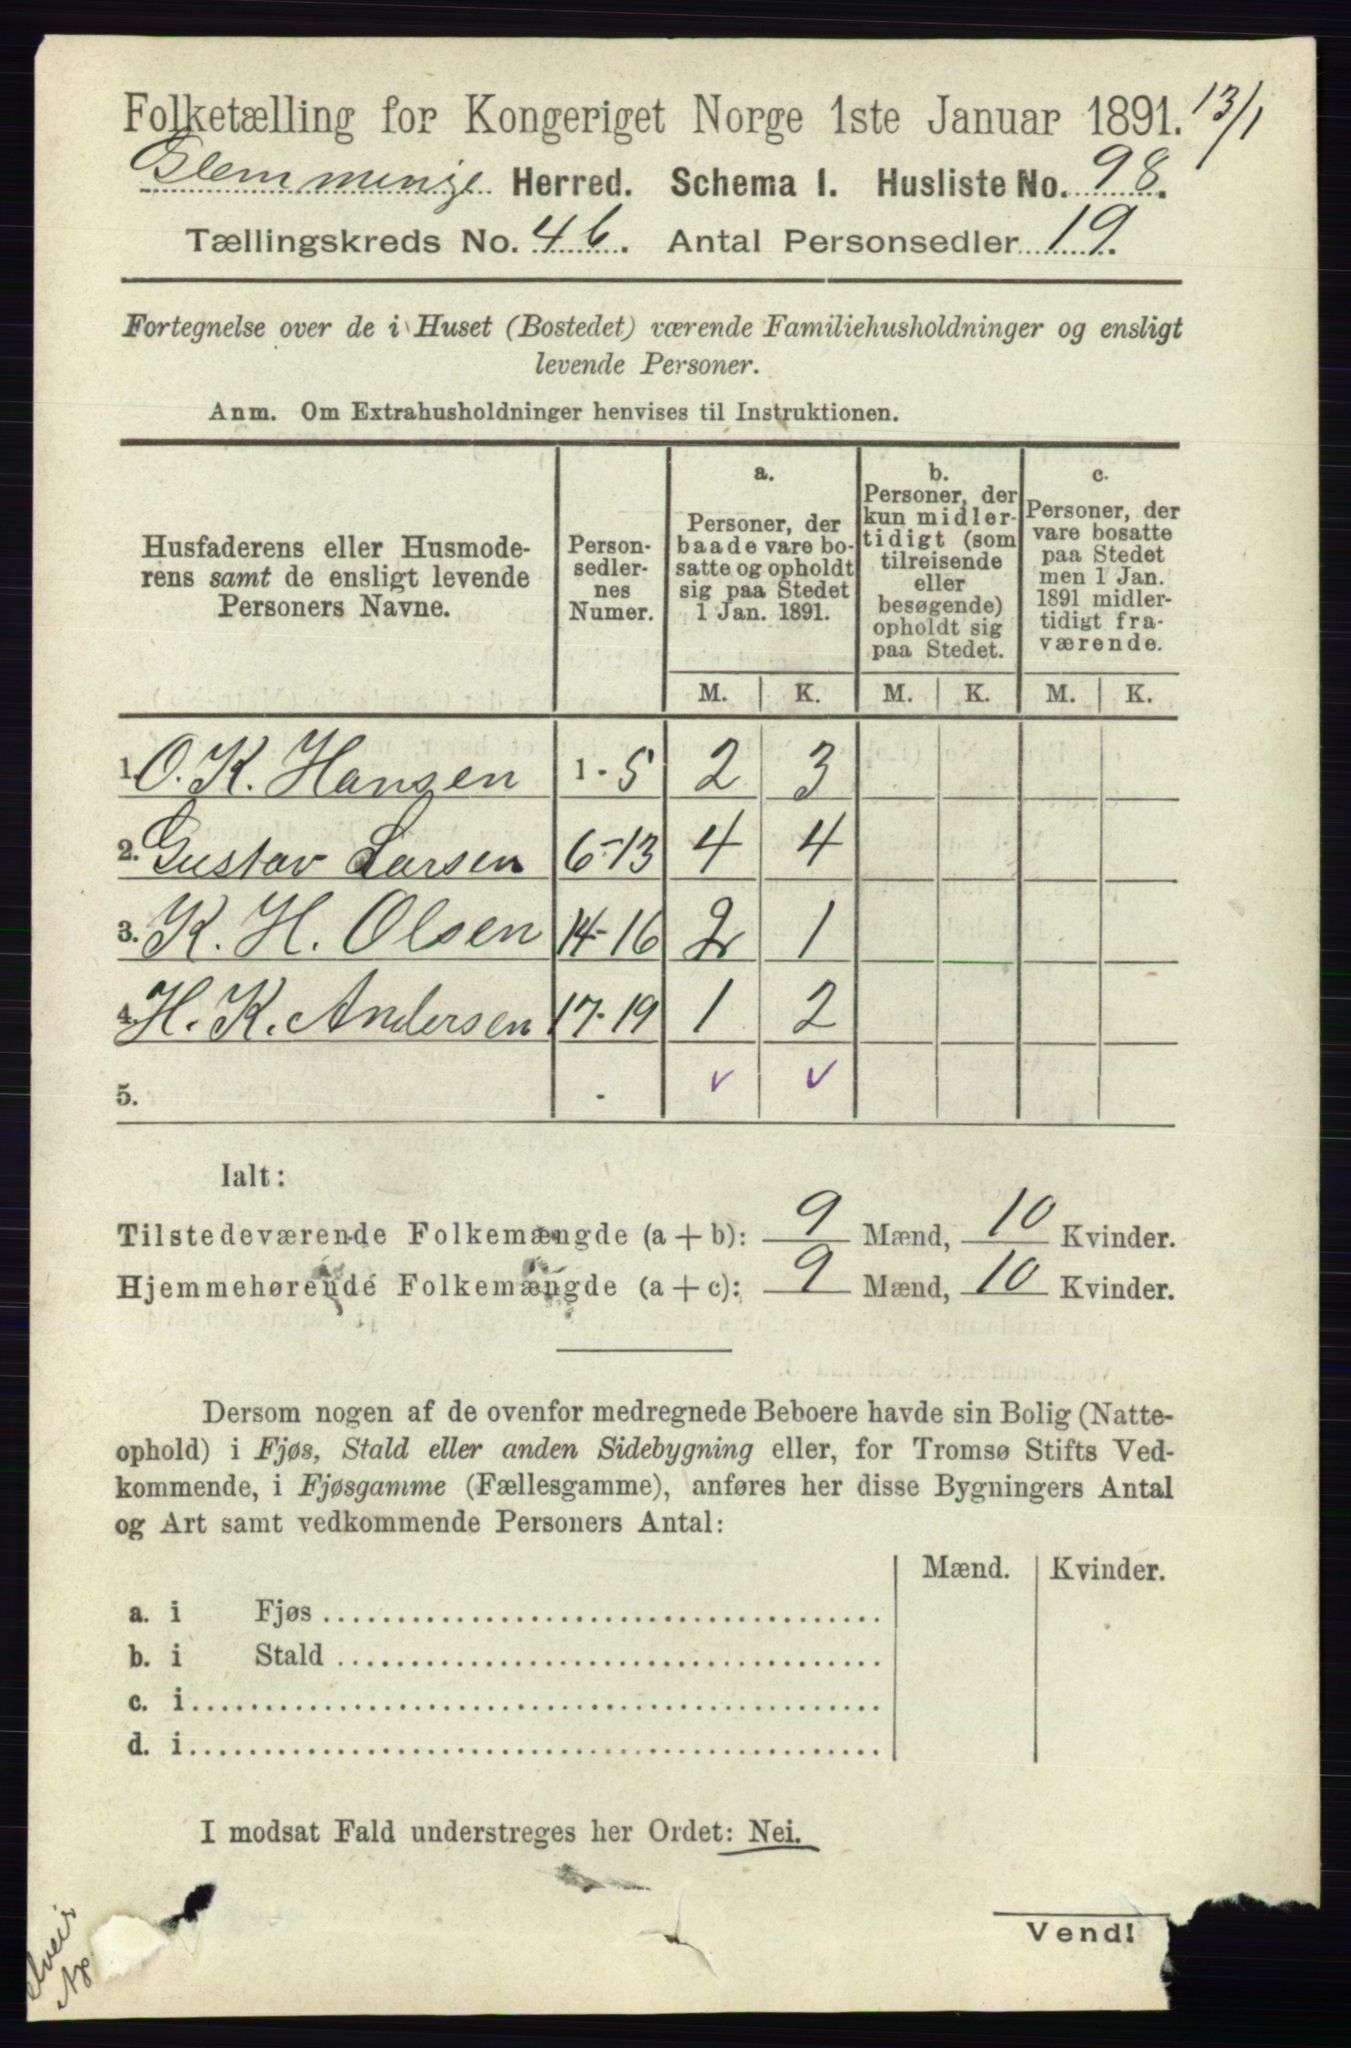 Folketælling for Kongeriget Norge 1ste Januar 1891. 13/1
Glemminge Herred. Schema I. Husliste No. 98.
Tællingskreds No. 4 b. Antal Personsedler 19.
Fortegnelse over de i Huset (Bostedet) værende Familiehusholdninger og ensligt
levende Personer.
Anm. Om Extrahusholdninger henvises til Instruktionen.
Husfaderens eller Husmode-
rens samt de ensligt levende
Personers Navne.
Person-
sedler-
nes
Numer.
a.
Personer, der
baade vare bo-
satte og opholdt
sig paa Stedet
1 Jan. 1891.
b.
Personer, der
kun midler-
tidigt (som
tilreisende
eller
besøgende)
opholdt sig
paa Stedet.
c.
Personer, der
vare bosatte
paa Stedet
men 1 Jan.
1891 midler-
tidigt fra-
værende.
M. K. M. K. M. K.
1. O. K. Hansen 1-5 2 3
2. Gustav Larsen 6-13 4 4
3. K. H. Olsen 14-16 2 1
4. H. K. Andersen 17-19 1 2
5. - v v
Ialt:
Tilstedeværende Folkemængde (a + b): 9 Mænd, 10 Kvinder.
Hjemmehørende Folkemængde (a + c): 9 Mænd, 10 Kvinder.
Dersom nogen af de ovenfor medregnede Beboere havde sin Bolig (Natte-
ophold) i Fjøs, Stald eller anden Sidebygning eller, for Tromsø Stifts Ved-
kommende, i Fjøsgamme (Fællesgamme), anføres her disse Bygningers Antal
og Art samt vedkommende Personers Antal:
Mænd. Kvinder.
a. i Fjøs
b. i Stald
c. i
d. i
I modsat Fald understreges her Ordet: Nei.
Vend!